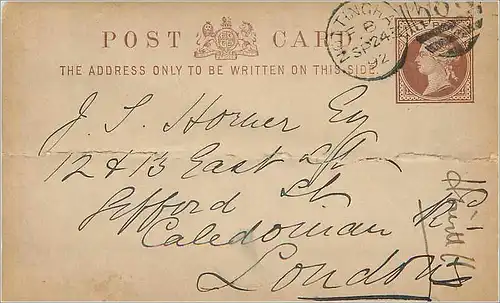 POST CARD
THE ADDRESS ONLY TO BE WRITTEN ON THIS SIDE.
NOTTINGHAM
F B
SP 24
92
J. S. Horner Esq
12 & 13 East St
Gifford St
Caledonian Rd
London